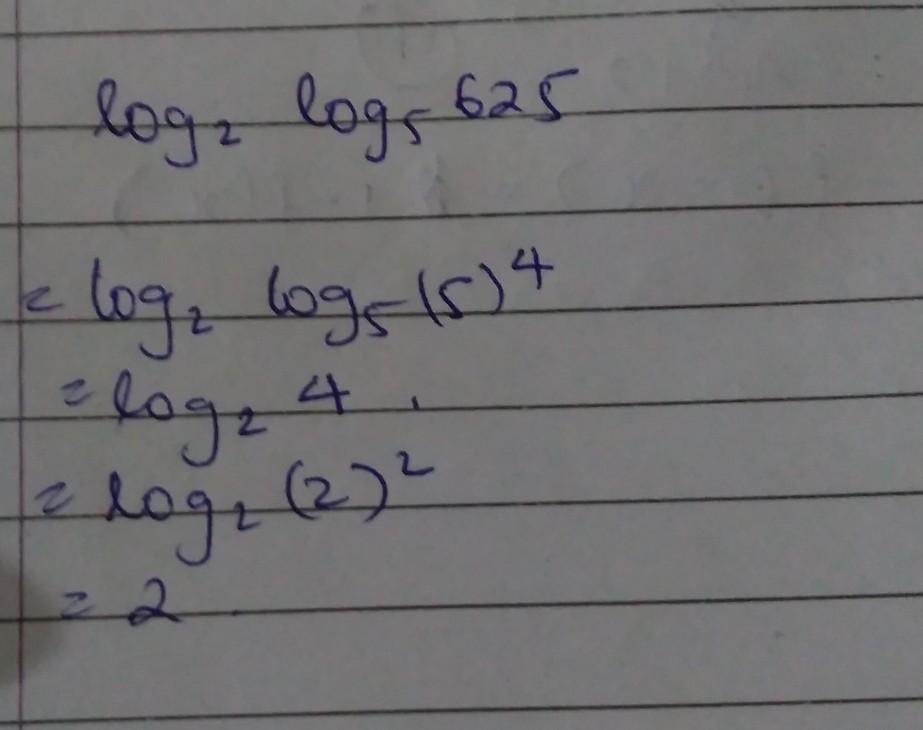 log₂ log₅ 625
= log₂ log₅ (5)⁴
= log₂ 4 .
= log₂ (2)²
= 2